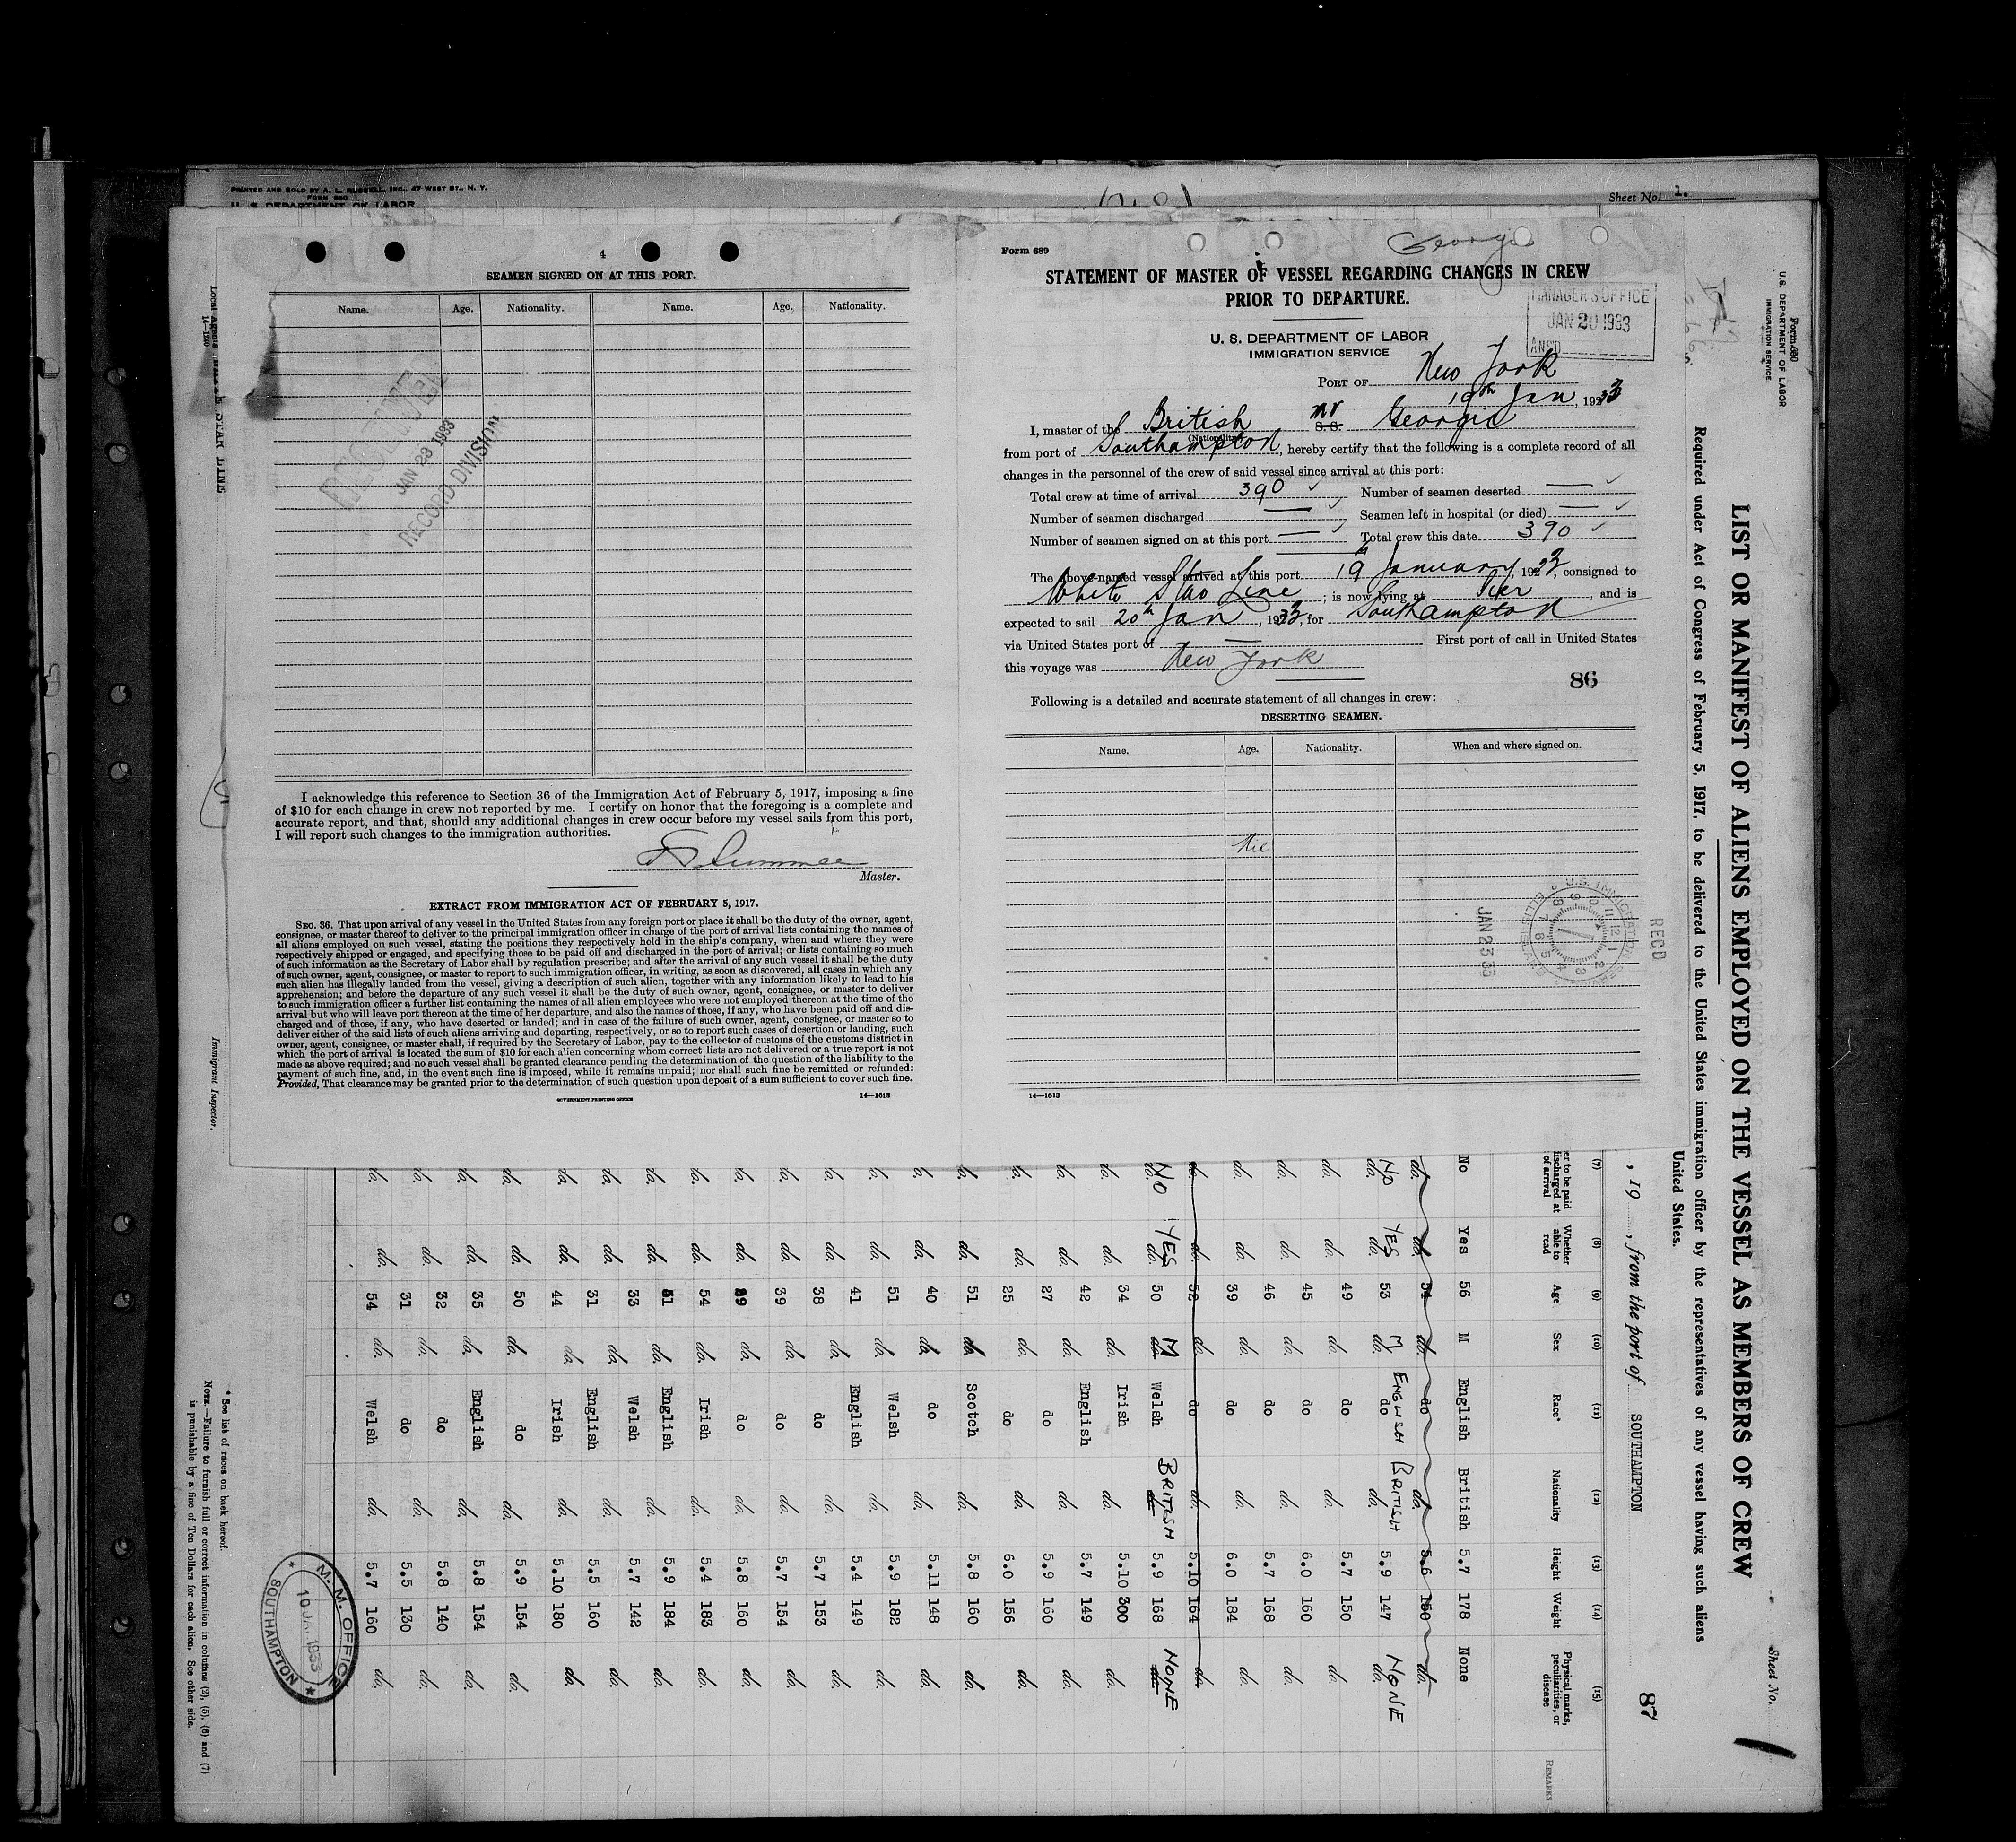 PRINTED AND SOLD BY A. L. RUSSELL, INC., 47 WEST ST., N. Y.
FORM 680
U. S. DEPARTMENT OF LABOR
Sheet No. 1.
4
SEAMEN SIGNED ON AT THIS PORT.
Name. Age. Nationality. Name. Age. Nationality.
RECEIVED
JAN 23 1933
RECORD DIVISION
I acknowledge this reference to Section 36 of the Immigration Act of February 5, 1917, imposing a fine
of $10 for each change in crew not reported by me. I certify on honor that the foregoing is a complete and
accurate report, and that, should any additional changes in crew occur before my vessel sails from this port,
I will report such changes to the immigration authorities.
Master.
EXTRACT FROM IMMIGRATION ACT OF FEBRUARY 5, 1917.
SEC. 36. That upon arrival of any vessel in the United States from any foreign port or place it shall be the duty of the owner, agent,
consignee, or master thereof to deliver to the principal immigration officer in charge of the port of arrival lists containing the names of
all aliens employed on such vessel, stating the positions they respectively hold in the ship's company, when and where they were
respectively shipped or engaged, and specifying those to be paid off and discharged in the port of arrival; or lists containing so much
of such information as the Secretary of Labor shall by regulation prescribe; and after the arrival of any such vessel it shall be the duty
of such owner, agent, consignee, or master to report to such immigration officer, in writing, as soon as discovered, all cases in which any
such alien has illegally landed from the vessel, giving a description of such alien, together with any information likely to lead to his
apprehension; and before the departure of any such vessel it shall be the duty of such owner, agent, consignee, or master to deliver
to such immigration officer a further list containing the names of all alien employees who were not employed thereon at the time of the
arrival but who will leave port thereon at the time of her departure, and also the names of those, if any, who have been paid off and dis-
charged and of those, if any, who have deserted or landed; and in case of the failure of such owner, agent, consignee, or master so to
deliver either of the said lists of such aliens arriving and departing, respectively, or so to report such cases of desertion or landing, such
owner, agent, consignee, or master shall, if required by the Secretary of Labor, pay to the collector of customs of the customs district in
which the port of arrival is located the sum of $10 for each alien concerning whom correct lists are not delivered or a true report is not
made as above required; and no such vessel shall be granted clearance pending the determination of the question of the liability to the
payment of such fine, and, in the event such fine is imposed, while it remains unpaid; nor shall such fine be remitted or refunded:
Provided, That clearance may be granted prior to the determination of such question upon deposit of a sum sufficient to cover such fine.
GOVERNMENT PRINTING OFFICE 14—1613
Form 689
Georgic
STATEMENT OF MASTER OF VESSEL REGARDING CHANGES IN CREW
PRIOR TO DEPARTURE.
MANAGER'S OFFICE
JAN 20 1933
ANSD
U. S. DEPARTMENT OF LABOR
IMMIGRATION SERVICE
PORT OF New York
19th Jan, 1933
I, master of the British MV S. S. Georgic
(Nationality)
from port of Southampton, hereby certify that the following is a complete record of all
changes in the personnel of the crew of said vessel since arrival at this port:
Total crew at time of arrival 390 Number of seamen deserted —
Number of seamen discharged — Seamen left in hospital (or died) —
Number of seamen signed on at this port — Total crew this date 390
The above-named vessel arrived at this port 19 January, 1933, consigned to
White Star Line; is now lying at Pier, and is
expected to sail 20th Jan, 1933, for Southampton
via United States port of — First port of call in United States
this voyage was New York
86
Following is a detailed and accurate statement of all changes in crew:
DESERTING SEAMEN.
Name. Age. Nationality. When and where signed on.
Nil
U.S. IMMIGRATION SERVICE
ELLIS ISLAND
REC'D
JAN 23 33
14—1613
Form 680
U.S. DEPARTMENT OF LABOR
IMMIGRATION SERVICE
Sheet No.
LIST OR MANIFEST OF ALIENS EMPLOYED ON THE VESSEL AS MEMBERS OF CREW
Required under Act of Congress of February 5, 1917, to be delivered to the United States immigration officer by the representatives of any vessel having such aliens
United States.
87
, 19 , from the port of SOUTHAMPTON
(7) (8) (9) (10) (11) (12) (13) (14) (15)
er to be paid discharged at of arrival Whether able to read Age Sex Race* Nationality Height Weight Physical marks, peculiarities, or disease REMARKS
No Yes 56 M English British 5.7 178 None
do. do. 54 do. do do. 5.6 150 do.
NO do. YES do. 53 M do. ENGLISH do BRITISH do. 5.9 147 NONE do.
do. do. 49 do. do do. 5.7 150 do.
do. do. 45 do. do do. 6.0 160 do.
do. do. 46 do. do do. 5.7 168 do.
do. do. 39 do. do do. 6.0 184 do.
do. do. 52 do. do do. 5.10 164 do.
NO do. YES do. 50 M do. Welsh BRITISH do. 5.9 168 NONE do.
do. do. 34 do. Irish do. 5.10 200 do.
do. do. 42 do. English do. 5.7 149 do.
do. do. 27 do. do do. 5.9 160 do.
do. do. 25 do. do do. 6.0 156 do.
do. do. 51 do. Scotch do. 5.8 160 do.
do. do. 40 do. do do. 5.11 148 do.
do. do. 51 do. Welsh do. 5.9 182 do.
do. do. 41 do. English do. 5.4 149 do.
do. do. 38 do. do do. 5.7 153 do.
do. do. 39 do. do do. 5.7 154 do.
do. do. 39 do. do do. 5.8 160 do.
do. do. 54 do. Irish do. 5.4 183 do.
do. do. 51 do. English do. 5.9 184 do.
do. do. 33 do. Welsh do. 5.7 142 do.
do. do. 31 do. English do. 5.5 160 do.
do. do. 44 do. Irish do. 5.10 180 do.
do. do. 50 do. do do. 5.9 154 do.
do. do. 35 do. English do. 5.8 154 do.
do. do. 32 do. do do. 5.8 140 do.
do. do. 31 do. do do. 5.5 130 do.
do. do. 54 do. Welsh do. 5.7 160 do.
M. M. OFFICE
10 JAN 1933
SOUTHAMPTON
* See list of races on back hereof.
NOTE.—Failure to furnish full or correct information in columns (2), (5), (6) and (7)
is punishable by a fine of Ten Dollars for each alien. See other side.
Local Agents WHITE STAR LINE
14—1240
Immigrant Inspector.